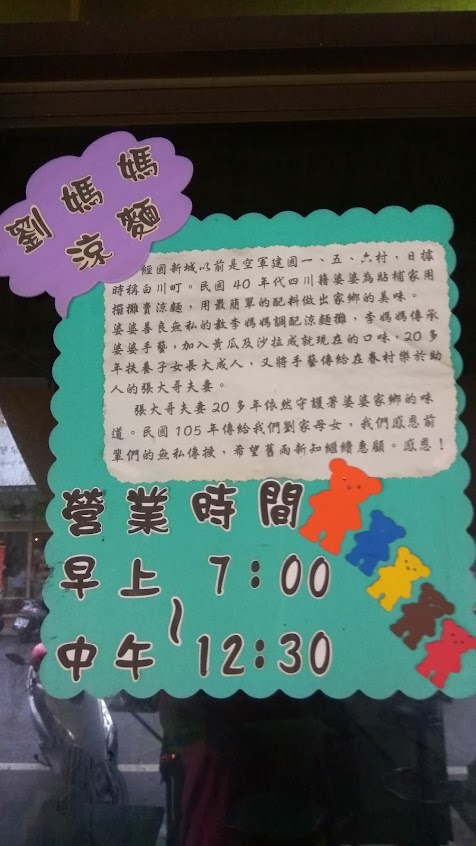 劉媽媽
涼麵
經國新城以前是空軍建國一、五、六村，日據
時稱白川町。民國40年代四川籍婆婆為貼補家用
擺攤賣涼麵，用最簡單的配料做出家鄉的美味。
婆婆善良無私的教李媽媽調配涼麵攤，李媽媽傳承
婆婆手藝，加入黃瓜及沙拉成就現在的口味，20多
年扶養子女長大成人，又將手藝傳給在眷村樂於助
人的張大哥夫妻。
張大哥夫妻20多年依然守護著婆婆家鄉的味
道。民國105年傳給我們劉家母女，我們感恩前
輩們的無私傳授，希望舊雨新知繼續惠顧。感恩！
營業時間
早上 7:00
~
中午 12:30